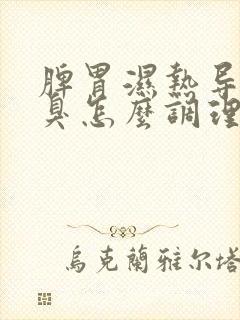 脾胃濕熱导
臭怎麼調理
烏克蘭雅尔塔